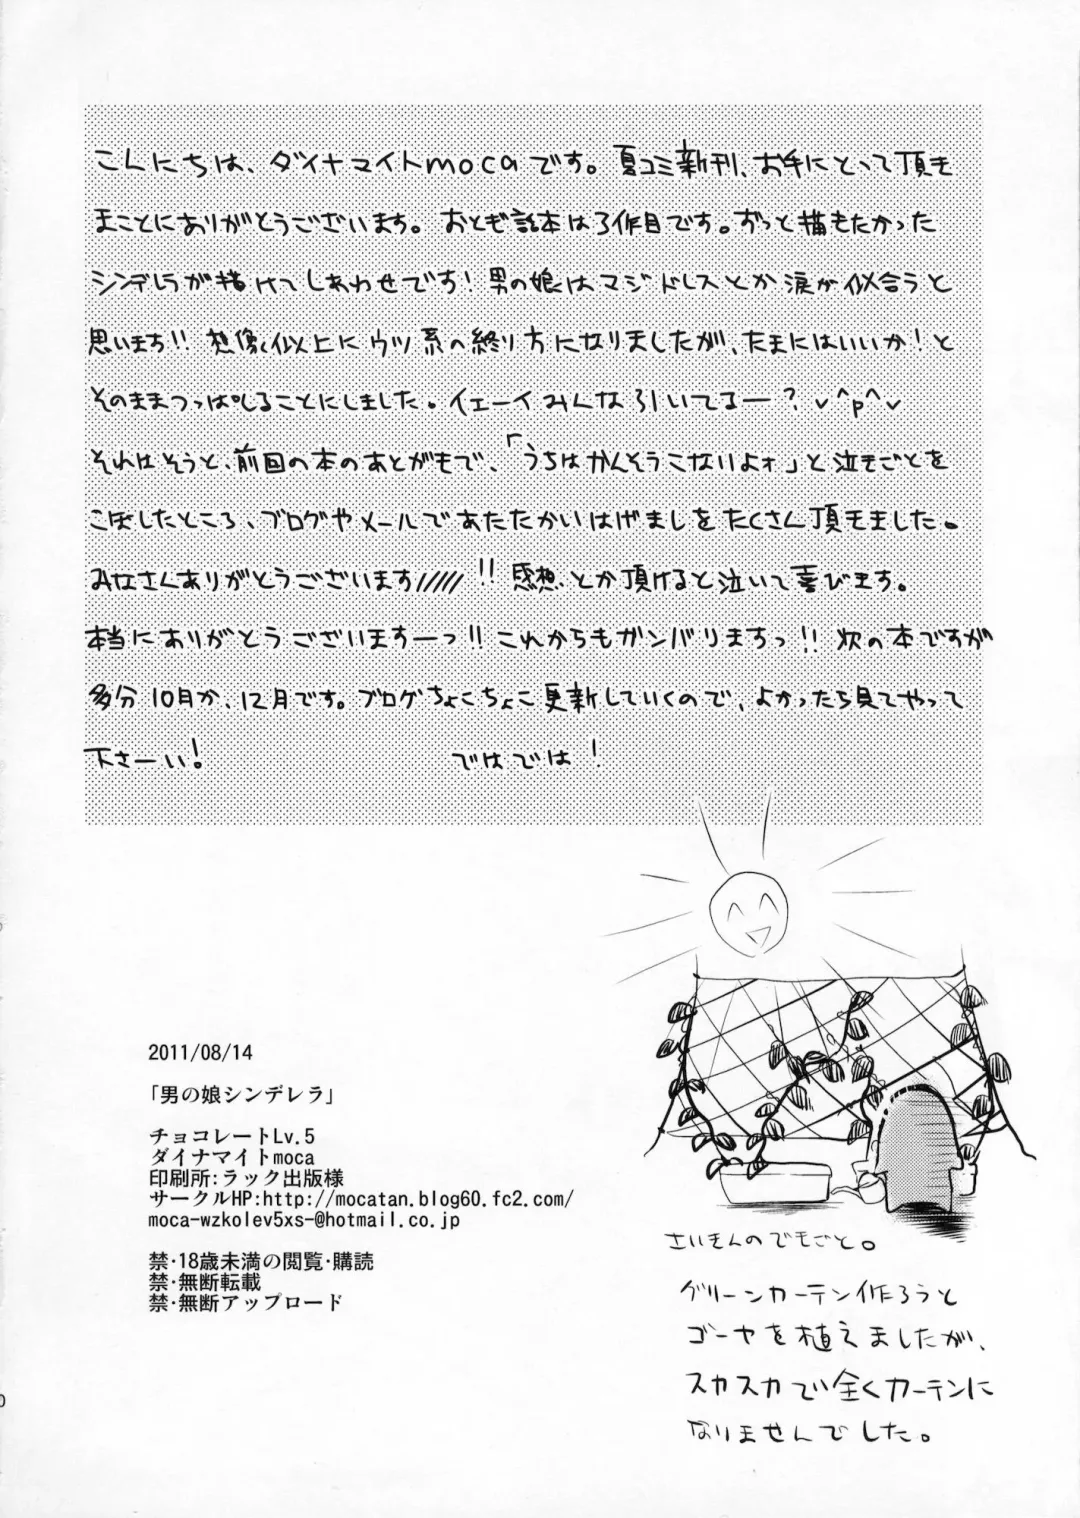 こんにちは、ダイナマイトmocaです。夏コミ新刊、お手にとって頂き
まことにありがとうございます。おとぎ話本は3作目です。ずっと描きたかった
シンデレラが描けてしあわせです！男の娘はマジドレスとか涙が似合うと
思います!! 想像以上にウツ系の終り方になりましたが、たまにはいいか！と
そのままつっぱしることにしました。イェーイみんな引いてるー？
それはそうと、前回の本のあとがきで、「うちはかんそうこないよォ」と泣きごとを
こぼしたところ、ブログやメールであたたかいはげましをたくさん頂きました。
みなさんありがとうございます/////!! 感想とか頂けると泣いて喜びます。
本当にありがとうございますーっ!! これからもガンバリますっ!! 次の本ですが
多分10月か、12月です。ブログちょこちょこ更新していくので、よかったら見てやって
下さーい！ ではでは！
2011/08/14
「男の娘シンデレラ」
チョコレートLv.5
ダイナマイトmoca
印刷所:ラック出版様
サークルHP:http://mocatan.blog60.fc2.com/
moca-wzkolev5xs-@hotmail.co.jp
禁･18歳未満の閲覧･購読
禁･無断転載
禁･無断アップロード
さいきんのできごと。
グリーンカーテン作ろうと
ゴーヤを植えましたが、
スカスカで全くカーテンに
なりませんでした。